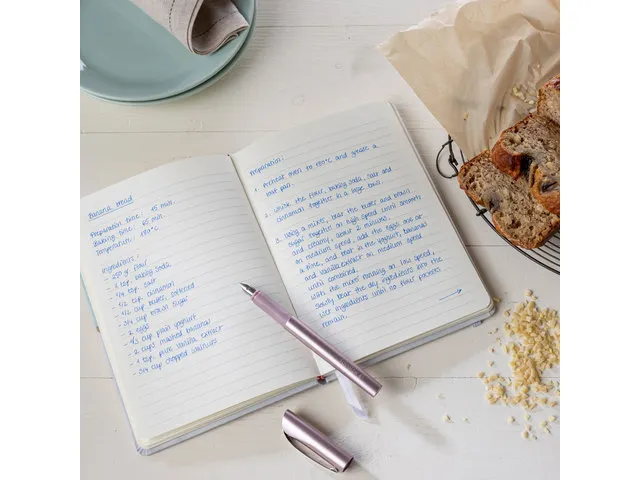 Banana Bread
Preparation time: 15 min.
Baking time: 65 min.
Temperature: 180°C
Ingredients:
- 250 g flour
- 1 tsp. baking soda
- 1/4 tsp. salt
- 1/2 cup cinnamon
- 1/2 cup butter, softened
- 3/4 cup brown sugar
- 2 eggs
- 1/3 cup plain yoghurt
- 2 cups mashed bananas
- 1 tsp. pure vanilla extract
- 3/4 cup chopped walnuts
Preparation:
1. Preheat oven to 180°C and grease a
loaf pan.
2. Whisk the flour, baking soda, salt and
cinnamon together in a large bowl.
3. Using a mixer, beat the butter and brown
sugar together on high speed until smooth
and creamy, about 2 minutes.
on medium speed, add the eggs one at
a time, and beat in the yoghurt, bananas
and vanilla extract on medium speed
until combined.
With the mixer running on low speed,
slowly beat the dry ingredients into the
wet ingredients until no flour pockets
remain.